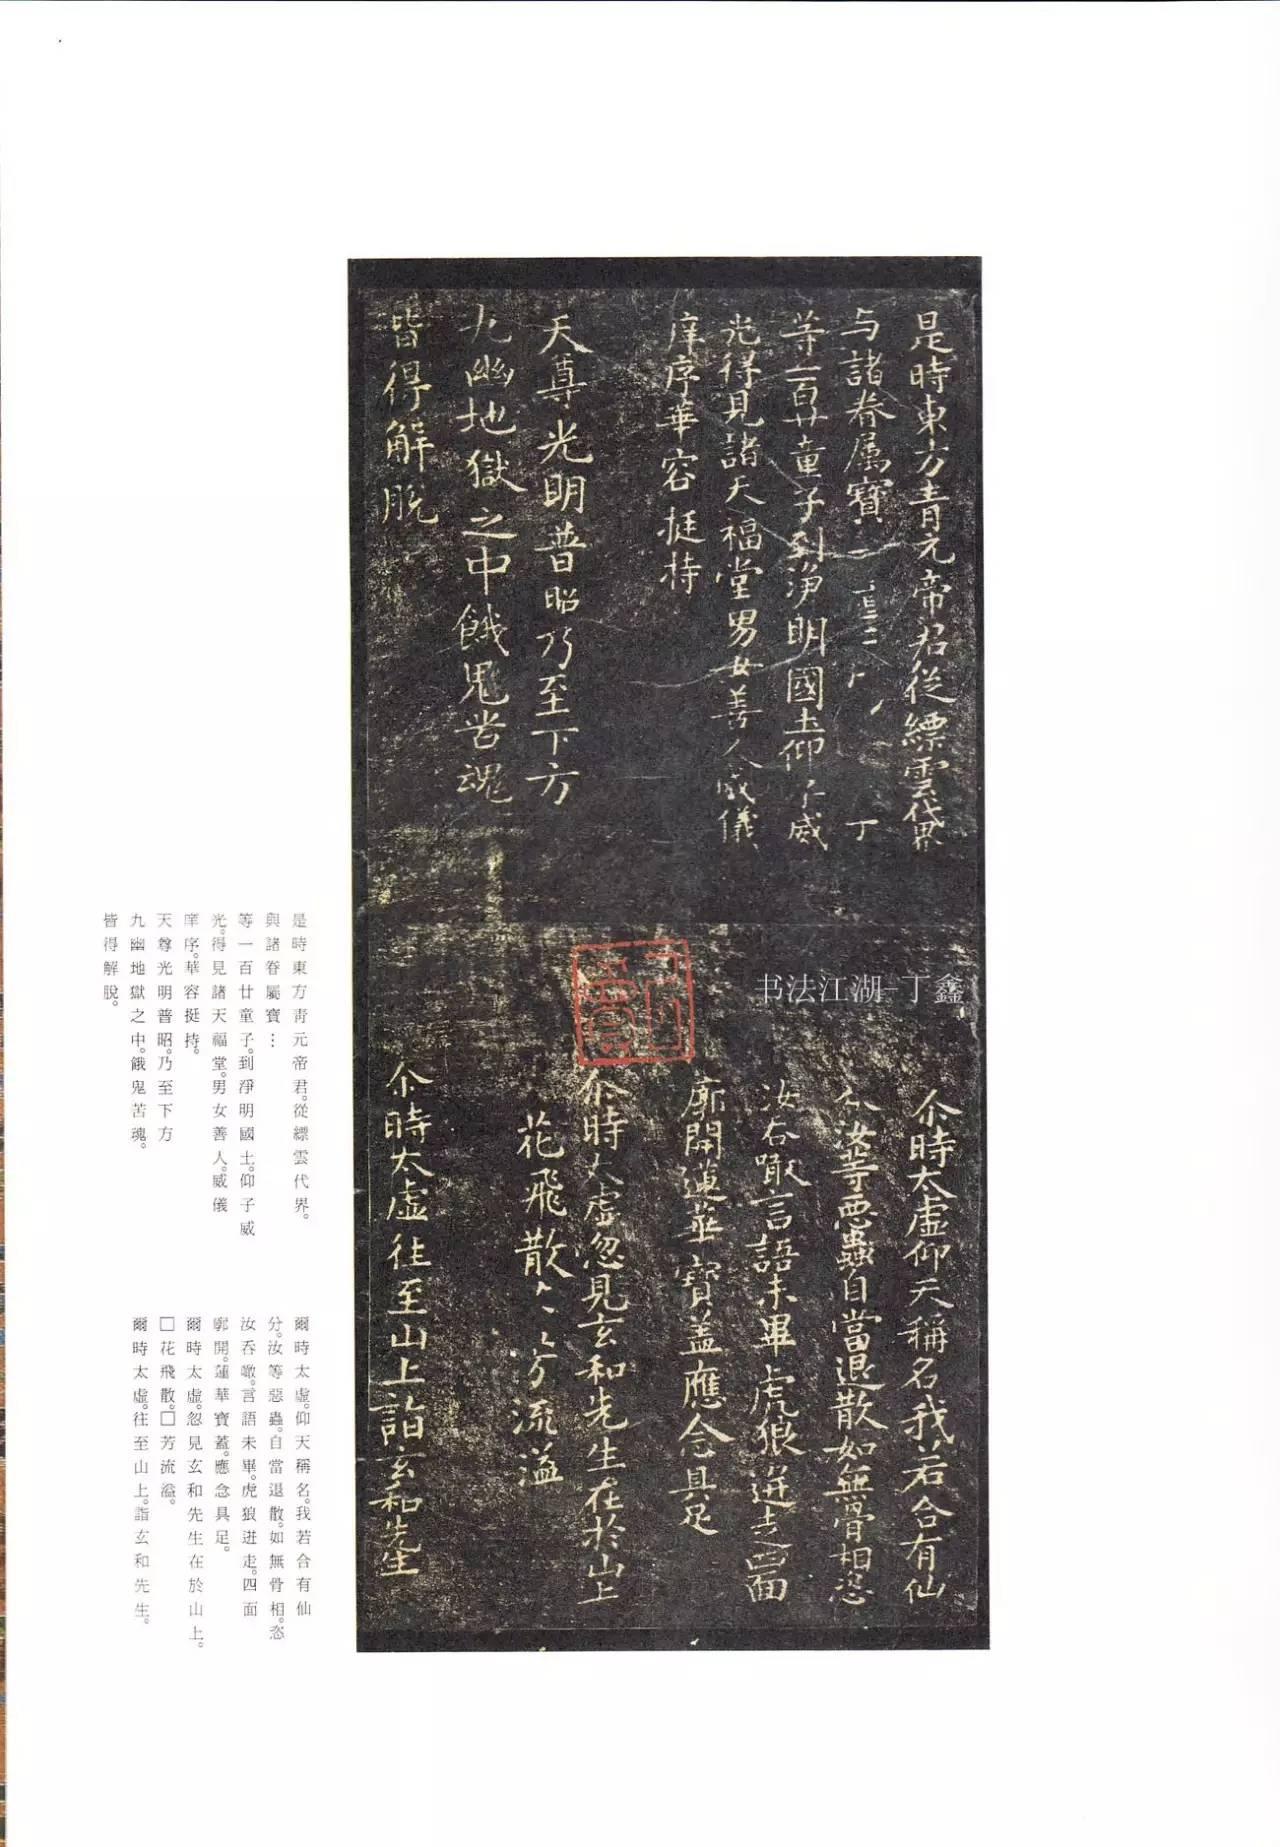 是時東方青元帝君從縹雲代界
与諸眷属寶
等一百廿童子到淨明國土仰
威
光得見諸天福堂男女善人威儀
庠序華容挺持
天尊光明普昭乃至下方
九幽地獄之中餓鬼苦魂
皆得解脫
尒時太虛仰天稱名我若合有仙
分汝等惡蟲自當退散如無骨相恣
汝吞噉言語未畢虎狼迸走四面
廓開蓮華寶盖應念具足
尒時太虛忽見玄和先生在於山上
花飛散
芳流溢
尒時太虛往至山上詣玄和先生
书法江湖-丁鑫
是時東方青元帝君。從縹雲代界。
與諸眷屬寶…
等一百廿童子。到淨明國土。仰子威
光。得見諸天福堂。男女善人。威儀
庠序。華容挺持。
天尊光明普昭。乃至下方
九幽地獄之中。餓鬼苦魂。
皆得解脫。
爾時太虛。仰天稱名。我若合有仙
分。汝等惡蟲。自當退散。如無骨相。恣
汝吞噉。言語未畢。虎狼迸走。四面
廓開。蓮華寶蓋。應念具足。
爾時太虛。忽見玄和先生在於山上。
□花飛散。□芳流溢。
爾時太虛。往至山上。詣玄和先生。